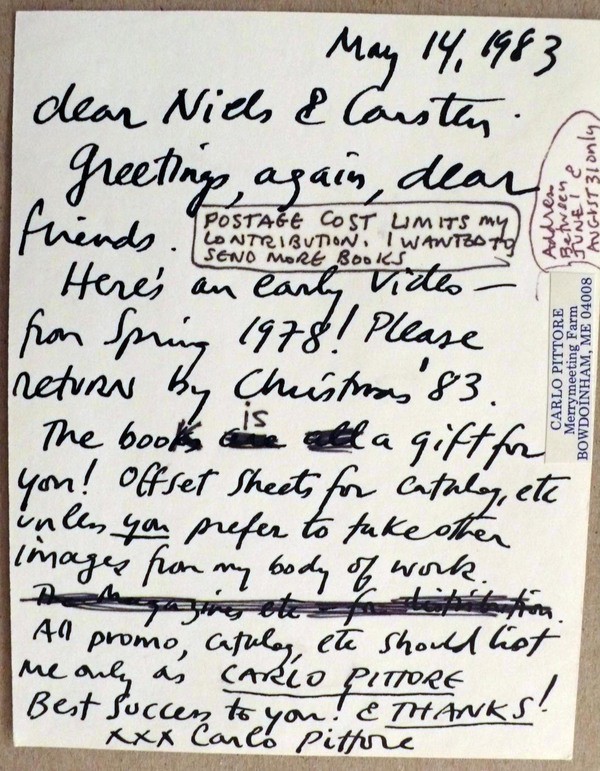 May 14, 1983
dear Niels & Carsten.
Greetings, again, dear
friends.
POSTAGE COST LIMITS my
CONTRIBUTION. I WANTED TO
SEND MORE BOOKS
Here's an early Video —
from Spring 1978! Please
return by Christmas '83.
is
The book are all a gift for
you! Offset sheets for catalog, etc
unless you prefer to take other
images from my body of work.
The Magazines etc — for distribution.
All promo, catalog, etc should list
me only as CARLO PITTORE
Best Success to you! & THANKS!
xxx Carlo Pittore
Address
Between
JUNE 1 &
AUGUST 31 only
CARLO PITTORE
Merrymeeting Farm
BOWDOINHAM, ME 04008